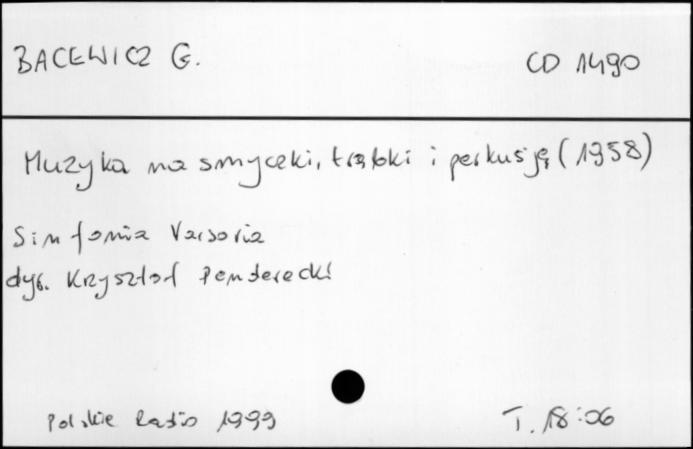 BACEWICZ G.
CD 1490
Muzyka na smyczki, trąbki i perkusję (1958)
Sinfonia Varsovia
dyr. Krzysztof Penderecki
Polskie Radio 1999
T. 18:06